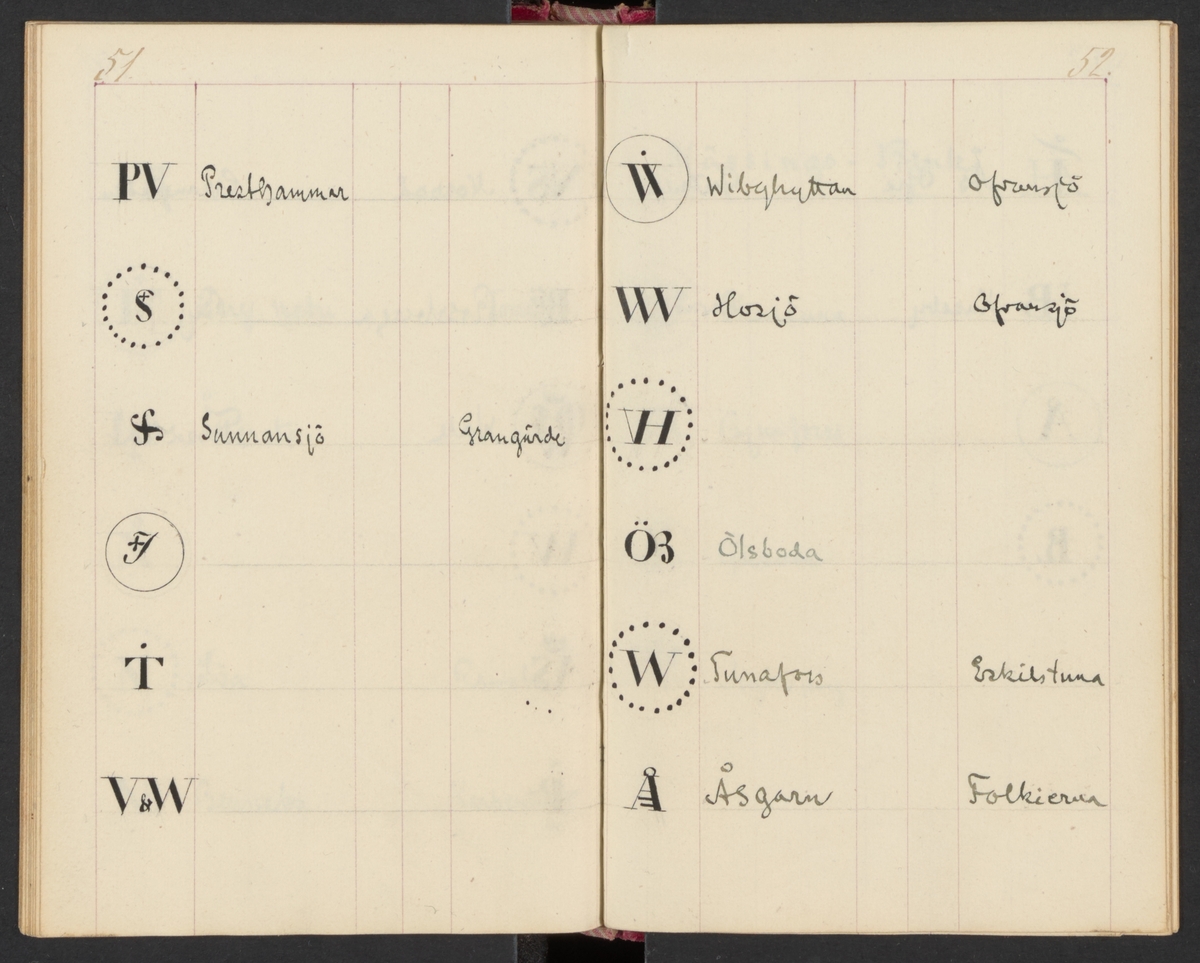 51.
PV Presthammar
S
S Sunnansjö Grangärde
S
T
V&W
52.
W Wibyhyttan Ofvansjö
WW Hosjö Ofvansjö
VH
ÖB Ölsboda
W Tunafors Eskilstuna
Å Åsgarn Folkierna